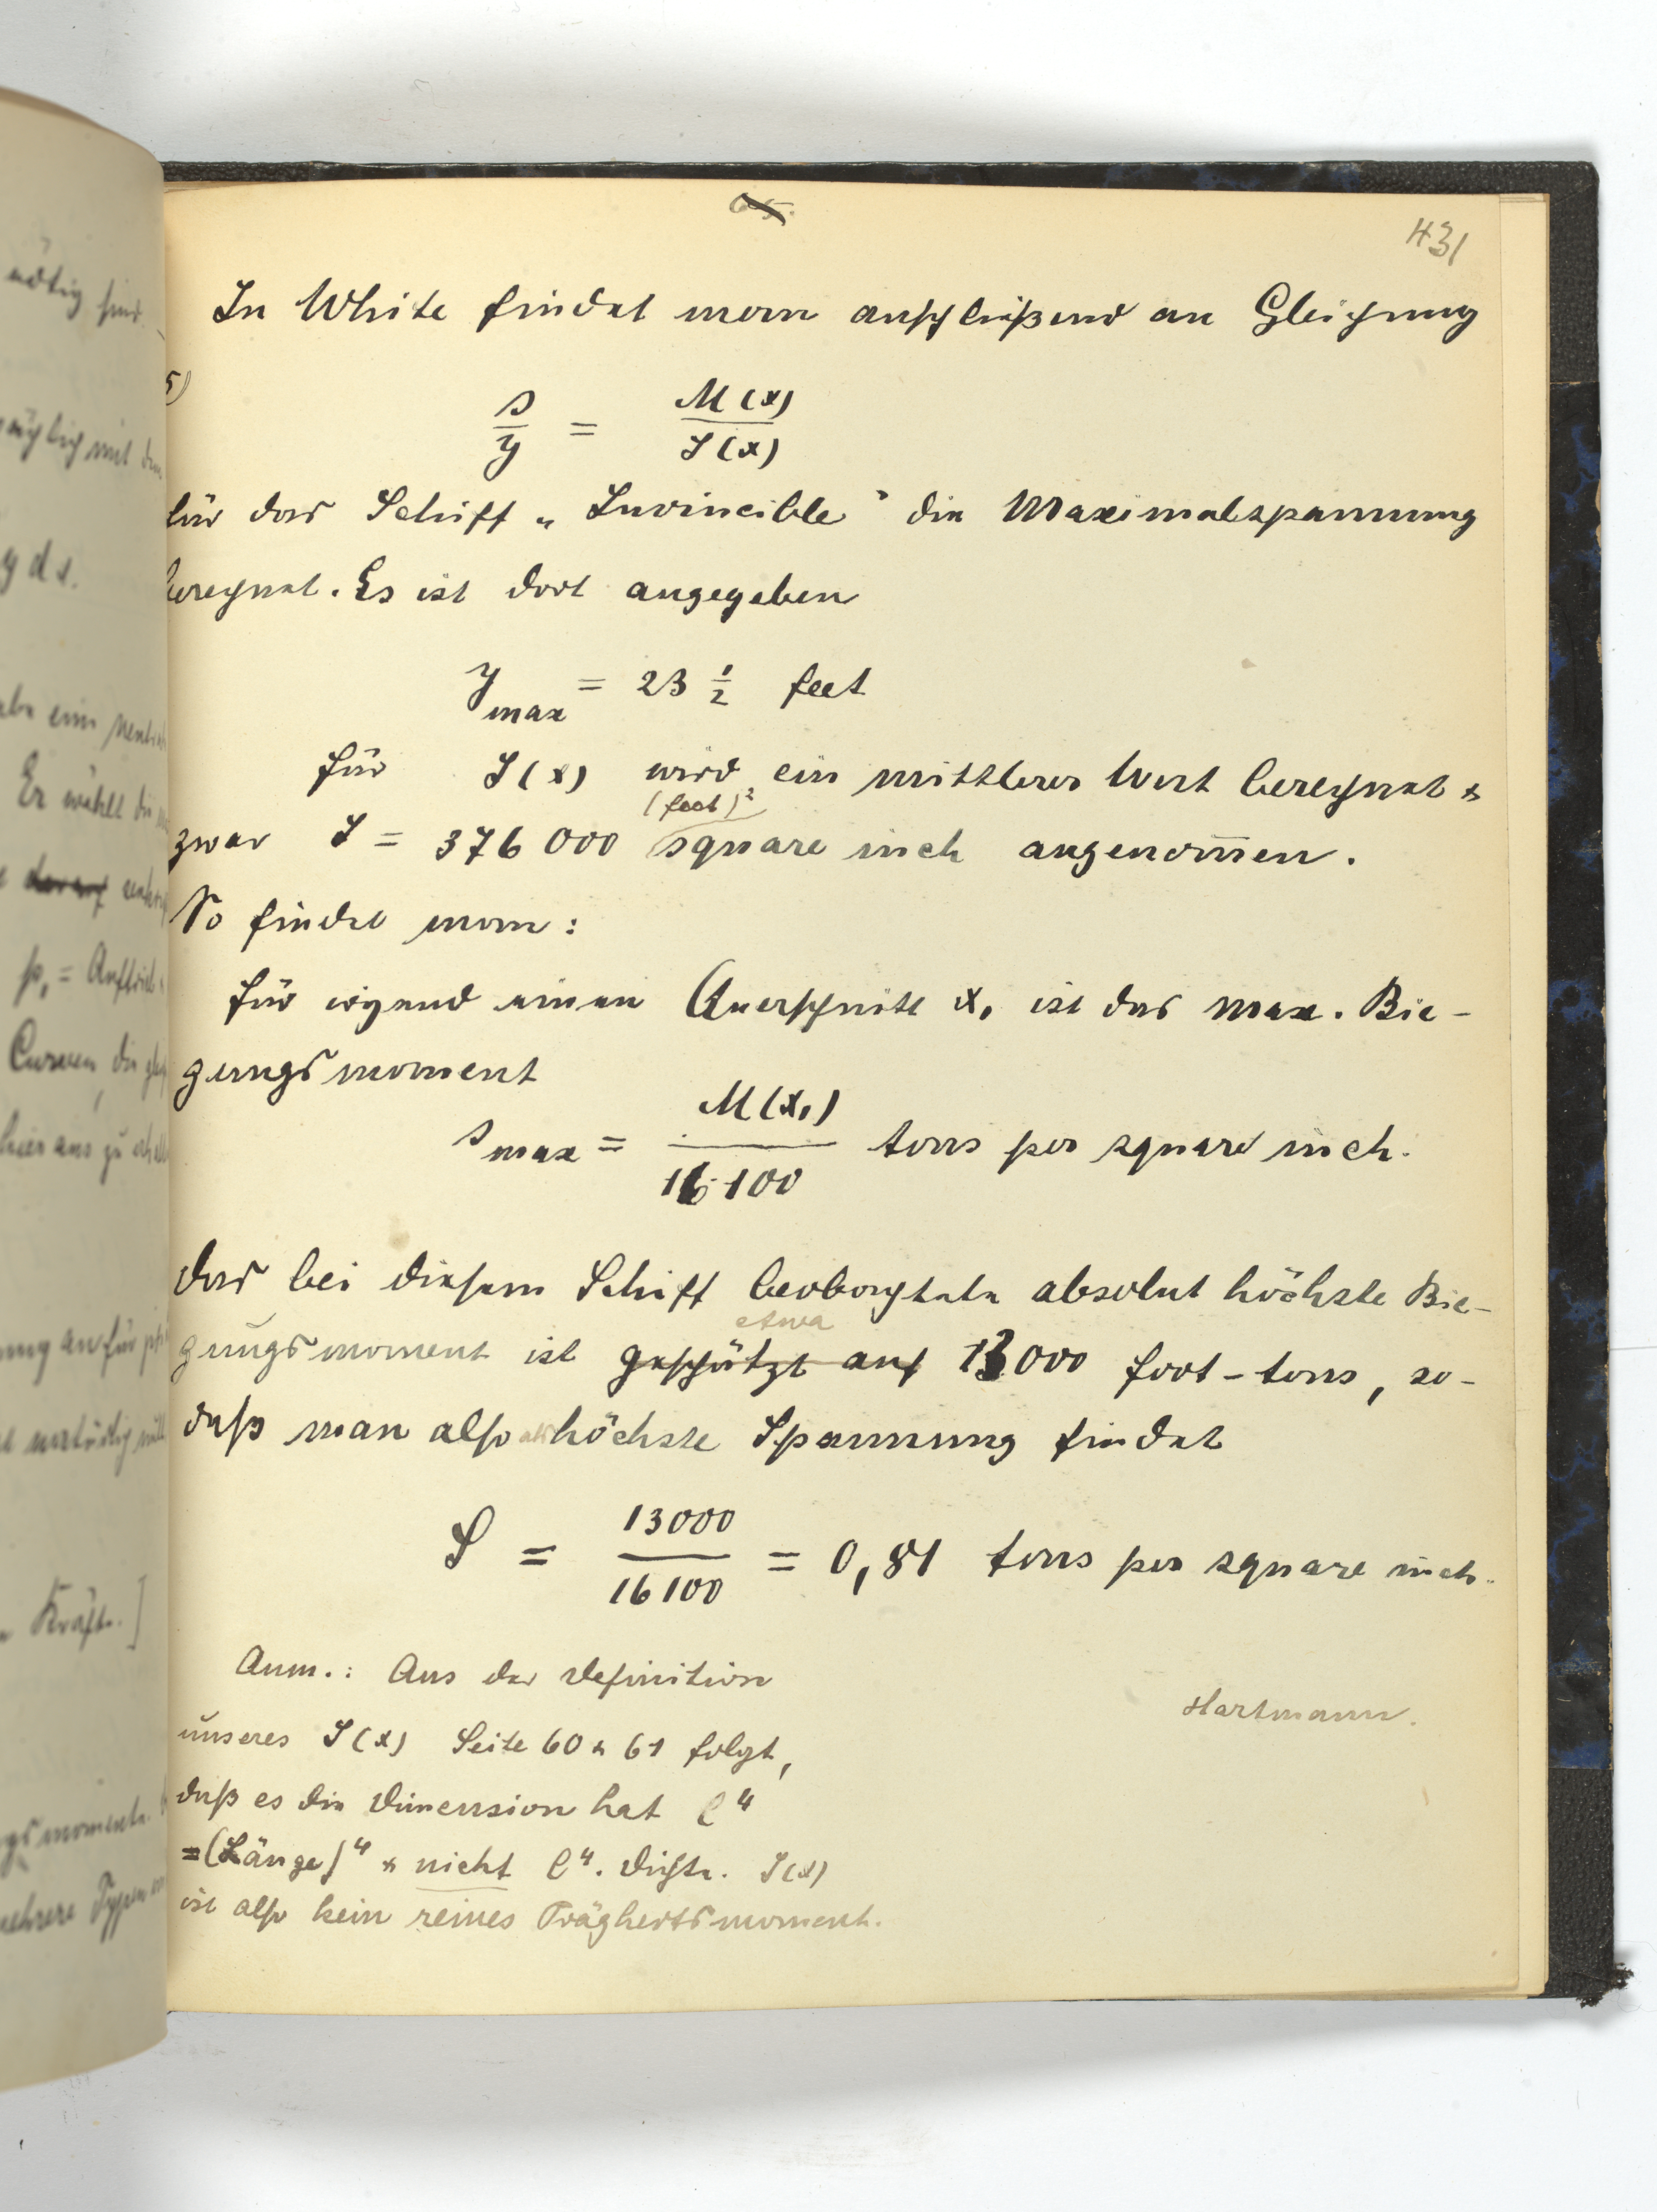 65.
431
In White findet man anschließend an Gleichung
5)
s/y = M(x)/J(x)
für das Schiff „Invincible” die Maximalspannung
berechnet. Es ist dort angegeben
y max = 23 1/2 feet
für J(x) wird ein mittlerer Wert berechnet &
(feet)²
zwar J = 376 000 square inch angenom̅en.
So findet man:
für irgend einen Querschnitt x₁ ist das max. Bie-
gungsmoment
s max = M(x₁)/16 100 tons per square inch.
das bei diesem Schiff beobachtete absolut höchste Bie-
etwa
gungsmoment ist geschätzt auf 13000 foot-tons, so-
daß man also als höchste Spannung findet
S = 13000/16100 = 0,81 tons per square inch.
Anm.: Aus der Definition
unseres J(x) Seite 60 & 61 folgt,
daß es die Dimension hat l⁴
=(Länge)⁴ & nicht l⁴. Dichte. J(x)
ist also kein reines Trägheitsmoment.
Hartmann.
nötig sind.
mit dem
y ds.
Er wählt die
p₁ = Auftrieb
Curven, die
hier aus zu
Kräfte.]
mehrere Typen